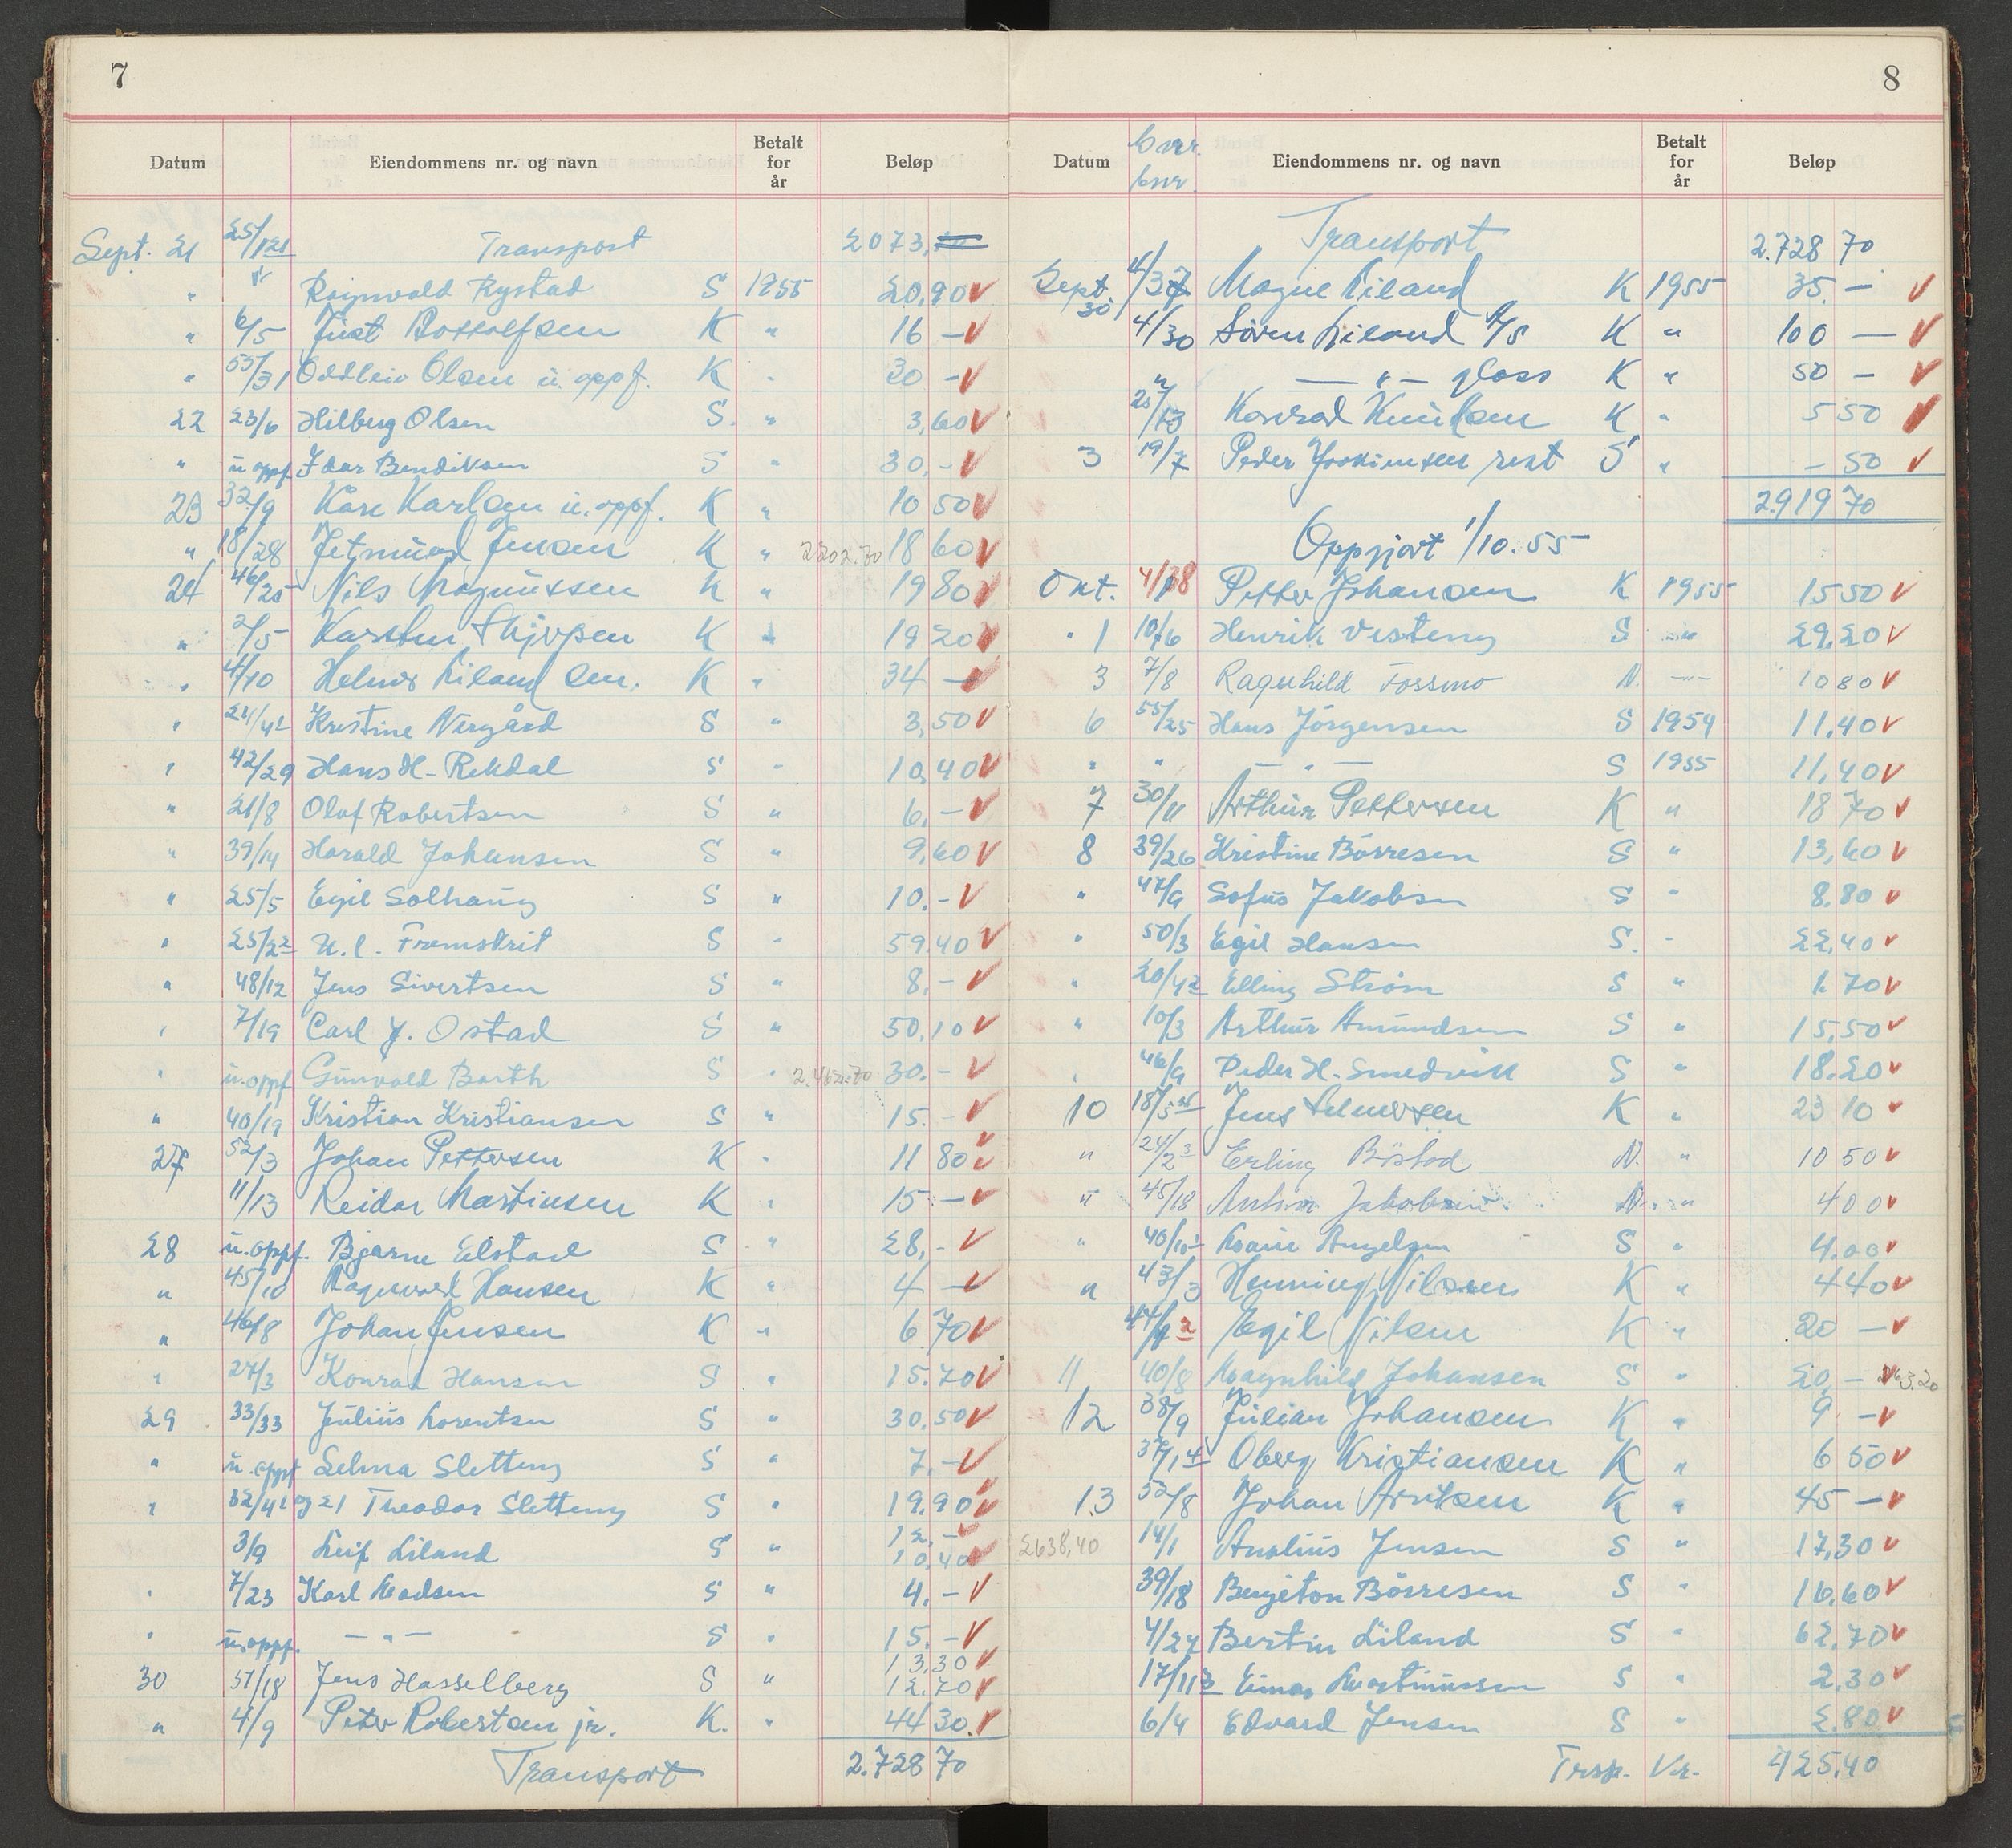 7
Datum Eiendommens nr. og navn Betalt for år Beløp
Sept. 21 25/121 Transport 2073,
" " Ragnvald Rystad S 1955 20,90 V
" 6/5 Just Bottolfsen K " 16 — V
" 55/31 Oddleiv Olsen u. oppf. K " 30 — V
22 23/6 Hilberg Olsen S. " 3,60 V
" u oppf Idar Bendiksen S " 30,- V
23 32/9 Kåre Karlsen u. oppf. K " 10 50 V
" 18/28 Jetmund Jensen K " 2202.70 18 60 V
24 46/25 Nils Magnussen K " 19 80 V
" 2/5 Karsten K " 19 20 V
" 4/10 Helmer Liland sen. K " 34 — V
" 21/41 Kristine Nergård S " 3,50 V
" 42/29 Hans H. Rekdal S " 10,40 V
" 21/8 Olaf Robertsen S " 6,- V
" 39/14 Harald Johansen S " 9,60 V
" 25/5 Egil Solhaug S " 10.- V
" 25/22 U.l. Framskrit S " 59,40 V
" 48/12 Jens Sivertsen S " 8,- V
" 7/19 Carl J. Ostad S " 50,10 V
" u.oppf Gunvald Barth S " 2.462.70 30.- V
" 40/19 Kristian Kristiansen S " 15.- V
27 52/3 Johan Pettersen K " 11 80 V
11/13 Reidar Martinsen K " 15 — V
28 u.oppf. Bjarne Elstad S " 28,- V
" 45/10 Ragnvard Hansen K " 4 — V
" 46/8 Johan Jensen K " 6 70 V
" 27/3 Konrad Hansen S " 15.70 V
29 33/33 Julius Lorentsen S " 30.50 V
" u.oppf Selma Sletteng S " 7,- V
" 32/41 og 21 Theodor Sletteng S " 19.90 V
3/9 Leif Liland S " 12,- V
10,40 V
" 7/23 Karl Madsen S " 4.- V
" u.oppf. — " — S " 15.- V
13,30 V
30 51/18 Jens Hasselberg S " 12.70 V
" 4/9 Peter Robertsen jr. K. " 44 30. V
Transport 2.728 70
8
Datum Gnr. bnr. Eiendommens nr. og navn Betalt for år Beløp
Transport 2.728 70
Sept. 30 4/37 Magne Liland K 1955 35.— V
4/30 Sören Liland A/S K " 100 — V
" — " — glass K " 50 — V
20/13 Konrad Knudsen K " 5 50 V
3 19/7 Peder Joakimsen rest S " – 50 V
2.919 70
Oppgjort 1/10. 55
Okt. 4/38 Petter Johansen K 1955 15 50 V
" 1 10/6 Henrik Vesteng S " 29.20 V
3 7/8 Ragnhild Fossmo N. —"— 10 80 V
6 55/25 Hans Jörgensen S 1954 11.40 V
" " — " — S 1955 11,40 V
7 30/11 Arthur Pettersen K " 18 70 V
8 39/26 Kristine Börresen S " 13,60 V
" 47/9 Sofus Jakobsen S " 8.80 V
" 50/3 Egil Hansen S. " 22,40 V
" 20/42 Elling Ström S " 1.70 V
" 10/3 Arthur Amundsen S " 15,50 V
" 46/9 Peder H. Smedvik S " 18.20 V
10 18/5 Jens Selmersen K " 23 10 V
" 24/23 Erling Böstad N. " 10 50 V
" 45/18 Anton Jakobsen N. " 4 00 V
" 40/10 Marie Angelsen S " 4.00 V
" 43/3 Henning Nilsen K " 4 40 V
44/92 Egil Nilsen K " 20 — V
11 40/8 Magnhild Johansen S " 20,— V
12 38/9 Julian Johansen K " 9 — V
37/14 Oberg Kristiansen K " 6 50 V
13 52/8 Johan Arntsen K " 45 — V
2638,40 14/1 Analius Jensen S " 17,30 V
39/18 Bergeton Börresen S " 16.60 V
4/24 Bertin Liland S " 62.70 V
17/113 Einar Martinussen S " 2,30 V
6/4 Edvard Jensen S " 2.80 V
Trsp. Kr. 425,40